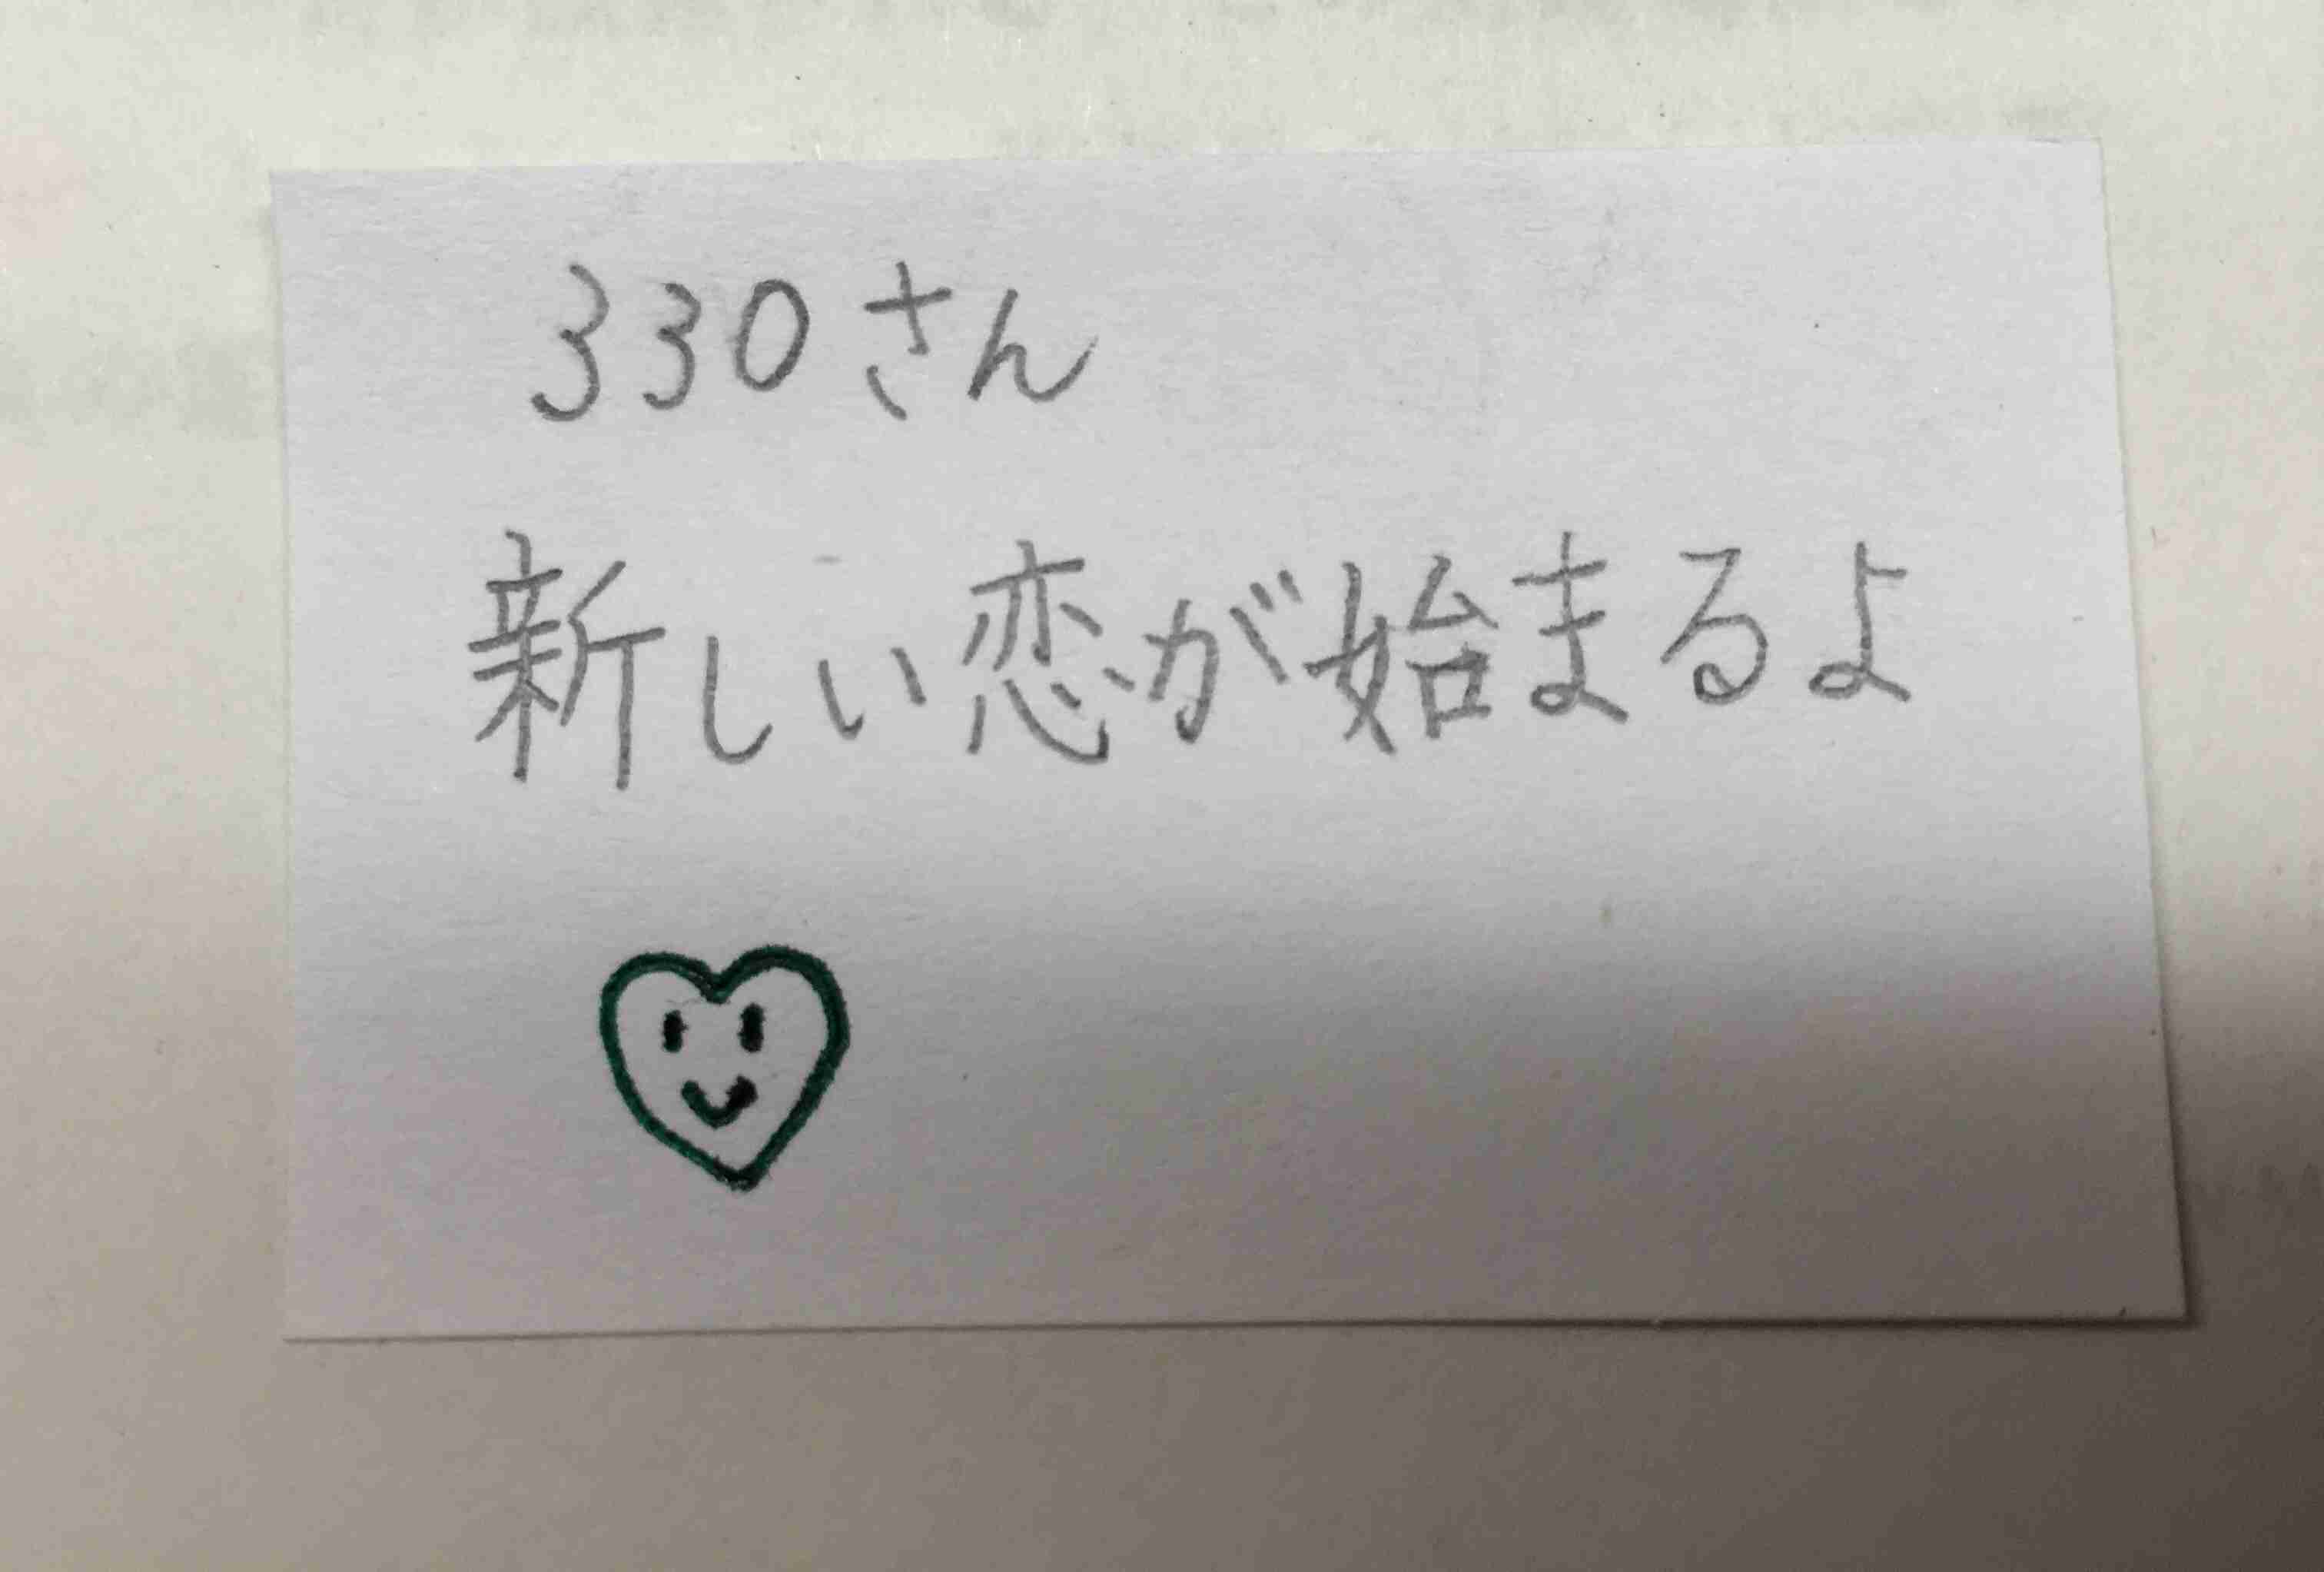 330さん
新しい恋が始まるよ